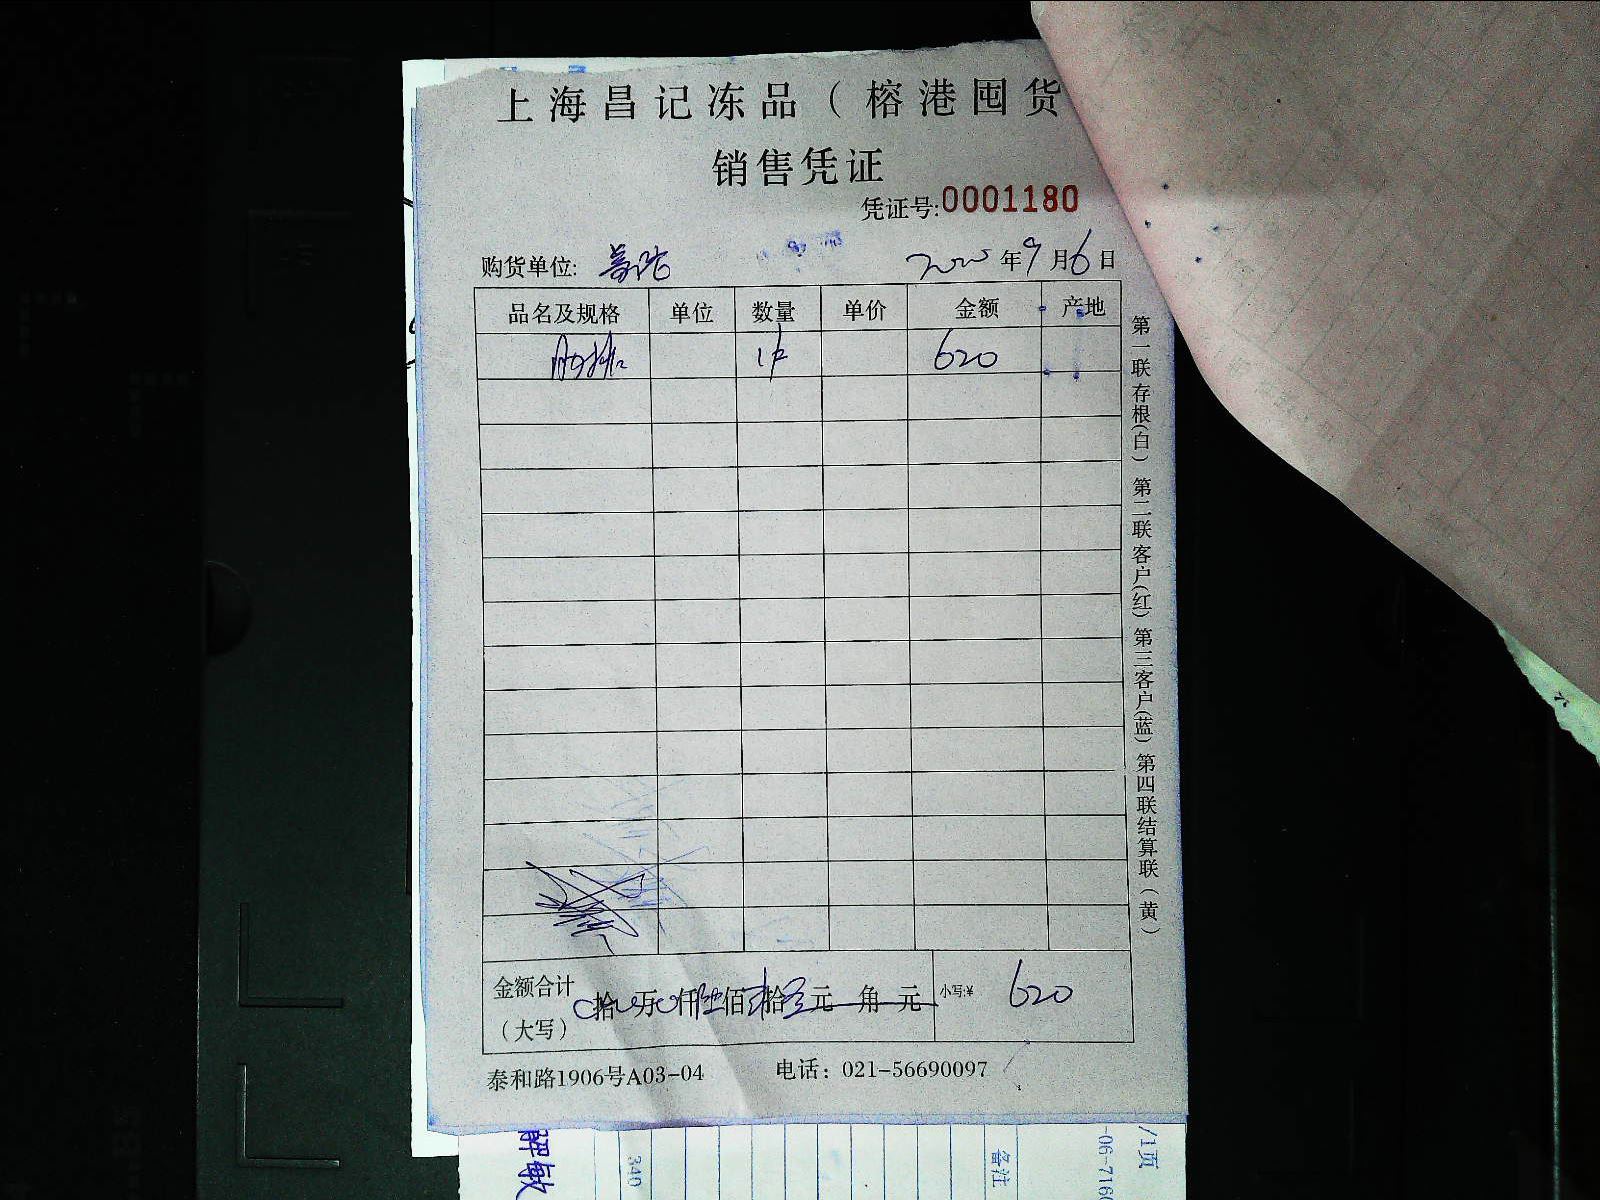 上海昌记冻品（榕港囤货
销售凭证
凭证号:0001180
购货单位:
年9月6日
品名及规格 单位 数量 单价 金额 产地
1件 620
金额合计
（大写）
拾 万 仟陆佰贰拾 元 角 元
小写:¥ 620
泰和路1906号A03-04 电话：021-56690097
第一联存根(白) 第二联客户(红) 第三客户(蓝) 第四联结算联（黄）
解敏
340
备注
-06-716
/1页